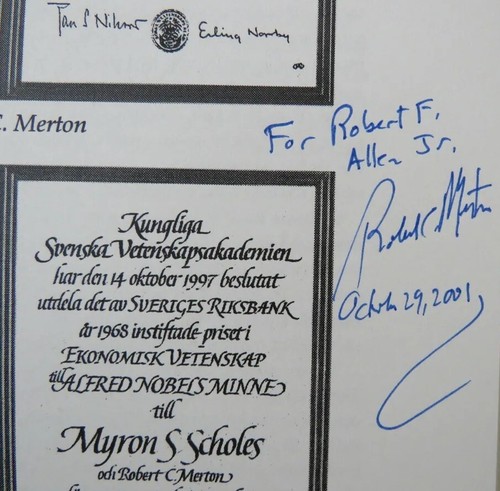 Jan S Nilsson
Erling Norrby
C. Merton
For Robert F.
Allen Jr.
Robert C Merton
October 29, 2001
Kungliga
Svenska Vetenskapsakademien
har den 14 oktober 1997 beslutat
utdela det av SVERIGES RIKSBANK
år 1968 instiftade priset i
EKONOMISK VETENSKAP
till ALFRED NOBELS MINNE
till
Myron S Scholes
och Robert C Merton